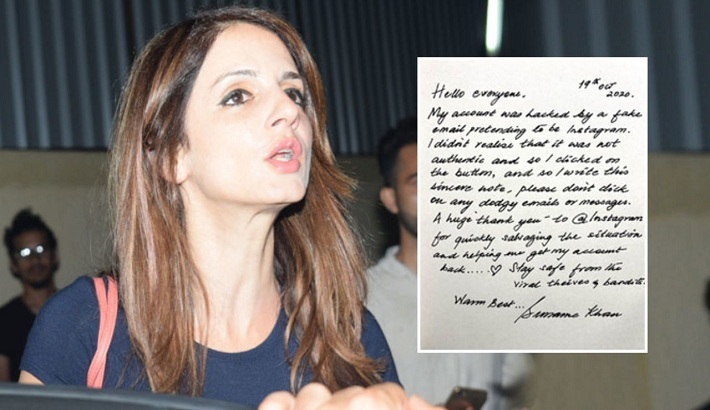 19th Oct
Hello everyone. 2020.
My account was hacked by a fake
email pretending to be Instagram.
I didn't realise that it was not
authentic and so I clicked on
the button, and so I write this
sincere note, please don't click
on any dodgy emails or messages.
A huge thank you to @Instagram
for quickly salvaging the situation
and helping me get my account
back.....♡ Stay safe from the
viral thieves & bandits.
Warm Best...
Sussanne Khan